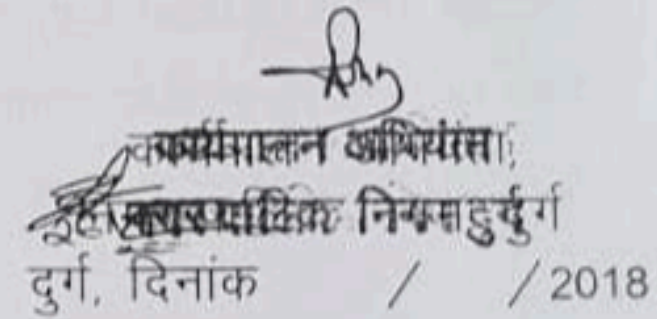 कार्यपालन अभियंता
नगर पालिक निगम दुर्ग
दुर्ग, दिनांक / / 2018